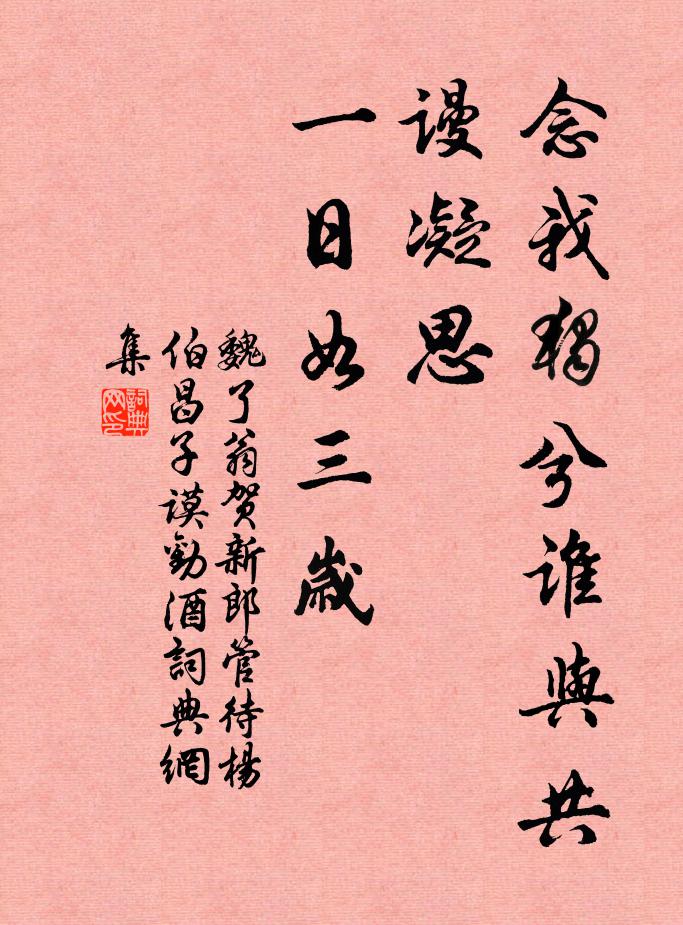 念我獨兮誰與共
謾凝思
一日如三歲
魏了翁賀新郎管待楊
伯昌子謨勸酒詞典網
集
詞典
网印